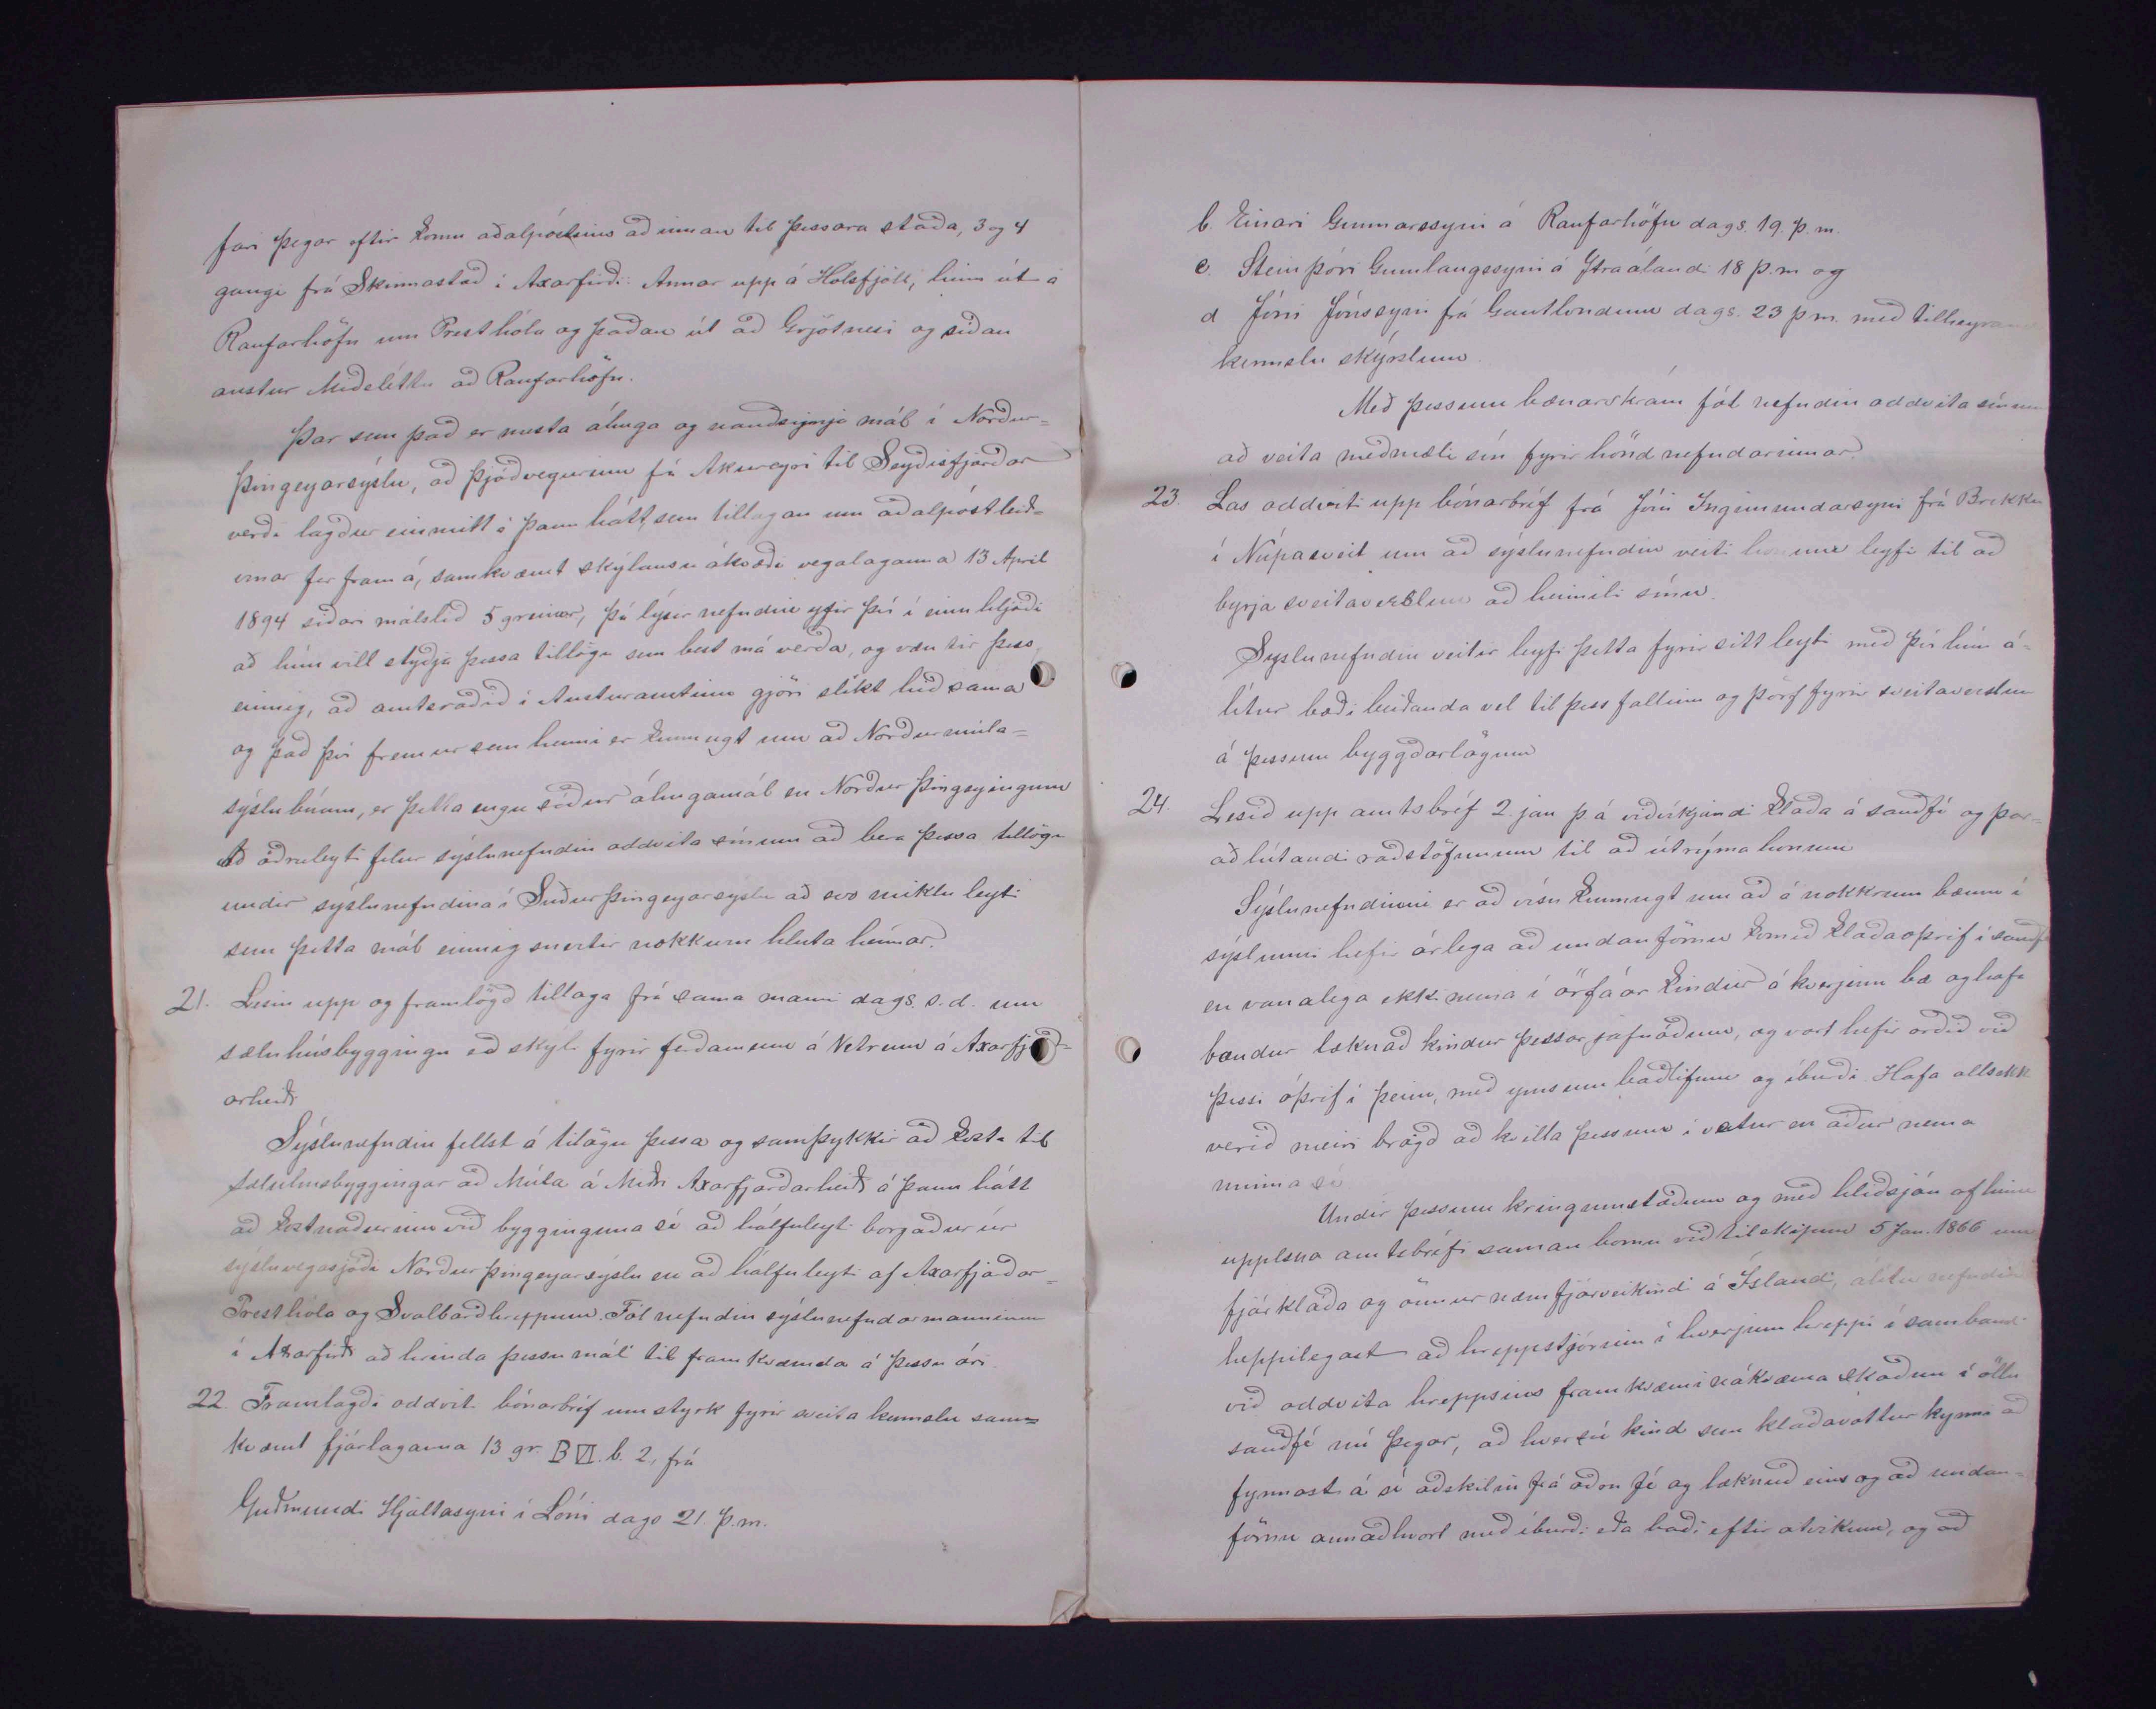 fari þegar eftir komu aðalpóstsins að innan til þessara staða, 3 og 4
gangi frá Skinnastað í Axarfirði. Annar upp á Hólsfjöll, hinn út á
Raufarhöfn um Presthóla og þaðan út að Grjótnesi og síðan
austur Miðsléttu að Raufarhöfn.
Þar sem það er mesta áhuga og nauðsynja mál í Norður=
þingeyarsýslu, að þjóðvegurinn frá Akureyri til Seyðisfjarðar
verði lagður einmitt á þann hátt, sem tillagan um aðalpóstleið=
irnar fer fram á, samkvæmt skýlausu ákvæði vegalaganna 13 April
1894 síðari málslið 5 greinar, þá lýsir nefndin yfir því í einu hljóði
að hún vill styðja þessa tillögu sem best má verða, og væntir þess
einnig, að amtsráðið í Austuramtinu gjöri slíkt hið sama
og það því fremur sem henni er kunnugt um að Norðurmúla=
sýslubúum, er þetta engu síður áhugamál en Norður Þingeyingum
Að öðruleyti felur sýslunefndin oddvita sínum að bera þessa tillögu
undir sýslunefndina í Suðurþingeyarsýslu að svo miklu leyti
sem þetta mál einnig snertir nokkurn hluta hennar.
21. Lesin upp og framlögð tillaga frá sama manni dags. s.d. um
sæluhúsbyggingu eð skýli fyrir ferðamenn á Vetrum á Axarfjarð=
arheiði
Sýslunefndin fellst á tilögu þessa og samþykkir að kosta til
sæluhusbyggingar að Múla á Miðri Axarfjarðarheiði á þann hátt
að kostnaðurinn við bygginguna sé að hálfuleyti borgaður úr
sýsluvegasjóði Norðurþingeyarsýslu en að hálfuleyti af Axarfjaðar=
Presthóla og Svalbarðhreppum. Fól nefndin sýslunefndarmanninum
í Axarfirði að hrinda þessu máli til framkvæmda á þessu ári.
22. Framlagði oddviti bónarbréf um styrk fyrir sveita kennslu sam=
kvæmt fjárlaganna 13 gr. B VI. b. 2, frá
Guðmundi Hjaltasyni í Lóni dags 21. þ.m.
b. Einari Gunnarssyni á Raufarhöfn dags. 19. þ.m.
c. Steinþóri Gunnlaugssyni á Ytraálandi 18 þ.m og
d Jóni Jónssyni frá Gautlöndum dags. 23 þ m. með tilheyrandi
kennslu skýrslum.
Með þessum bænarskrám fól nefndin oddvita sínum
að veita meðmæli sín fyrir hönd nefndarinnar.
23. Las oddviti upp bónarbréf frá Jóni Ingimundarsyni frá Brekku
í Núpasveit um að sýslunefndin veiti honum leyfi til að
byrja sveitaverslun að heimili sínu.
Syslunefndin veitir leyfi þetta fyrir sitt leyti með því hún á=
lítur bæði beiðanda vel til þess fallinn og þörf fyrir sveitaverslun
á þessum byggðarlögum
24. Lesið upp amtsbréf 2. jan þ á viðvíkjandi kláða á sauðfé og þar=
að lútandi ráðstöfunum til að útrýma honum
Sýslunefndinni er að vísu kunnugt um að á nokkrum bæum í
sýslunni hefir árlega að undanförnu komið kláðaóþrif í sauðfé
en vanalega ekki nema í örfáar kindur á hverjum bæ og hafa
bændur læknað kindur þessar jafnóðum, og vart hefir orðið við
þessi óþrif í þeim, með ymsum baðlifum og íburði. Hafa alls ekki
verið meiri brögð að kvilla þessum í vetur en aður nema
minna sé
Undir þessum kringumstæðum og með hliðsjón af hinu
upplesna amtsbréfi saman bornu við tilskipun 5 Jan. 1866 um
fjárkláða og önnur næm fjárveikindi á Íslandi, álítur nefndin
heppilegast að hreppstjórinn í hverjum hreppi í sambandi
við oddvita hreppsins framkvæmi nákvæma skoðun í öllu
sauðfé nú þegar, að hver sú kind sem kláðavottur kynni að
fynnast á sé aðskilin frá öðru fé og læknuð eins og að undan=
förnu annaðhvort með íburði eða baði eftir atvikum, og að